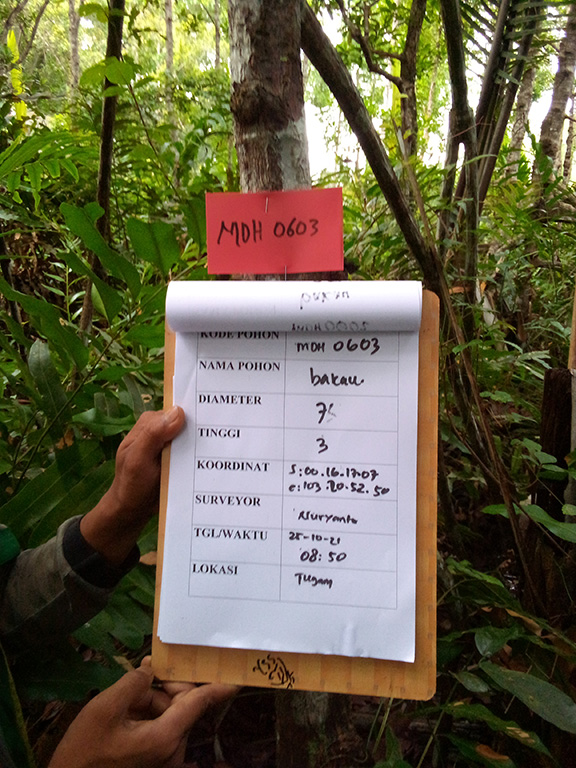 MDH 0603
KODE POHON MDH 0603
NAMA POHON bakau
DIAMETER 75
TINGGI 3
KOORDINAT S:00.16.17.07
e:103.20.52.50
SURVEYOR Nuryanto
TGL/WAKTU 25-10-21
08:50
LOKASI Tugam